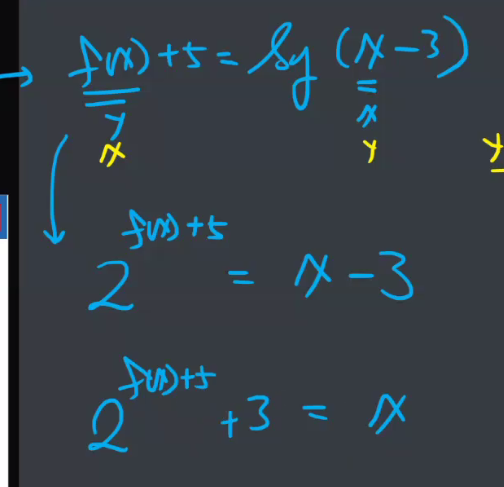 f(x) + 5 = lg (x - 3)
y x
x y y
2^{f(x)+5} = x - 3
2^{f(x)+5} + 3 = x